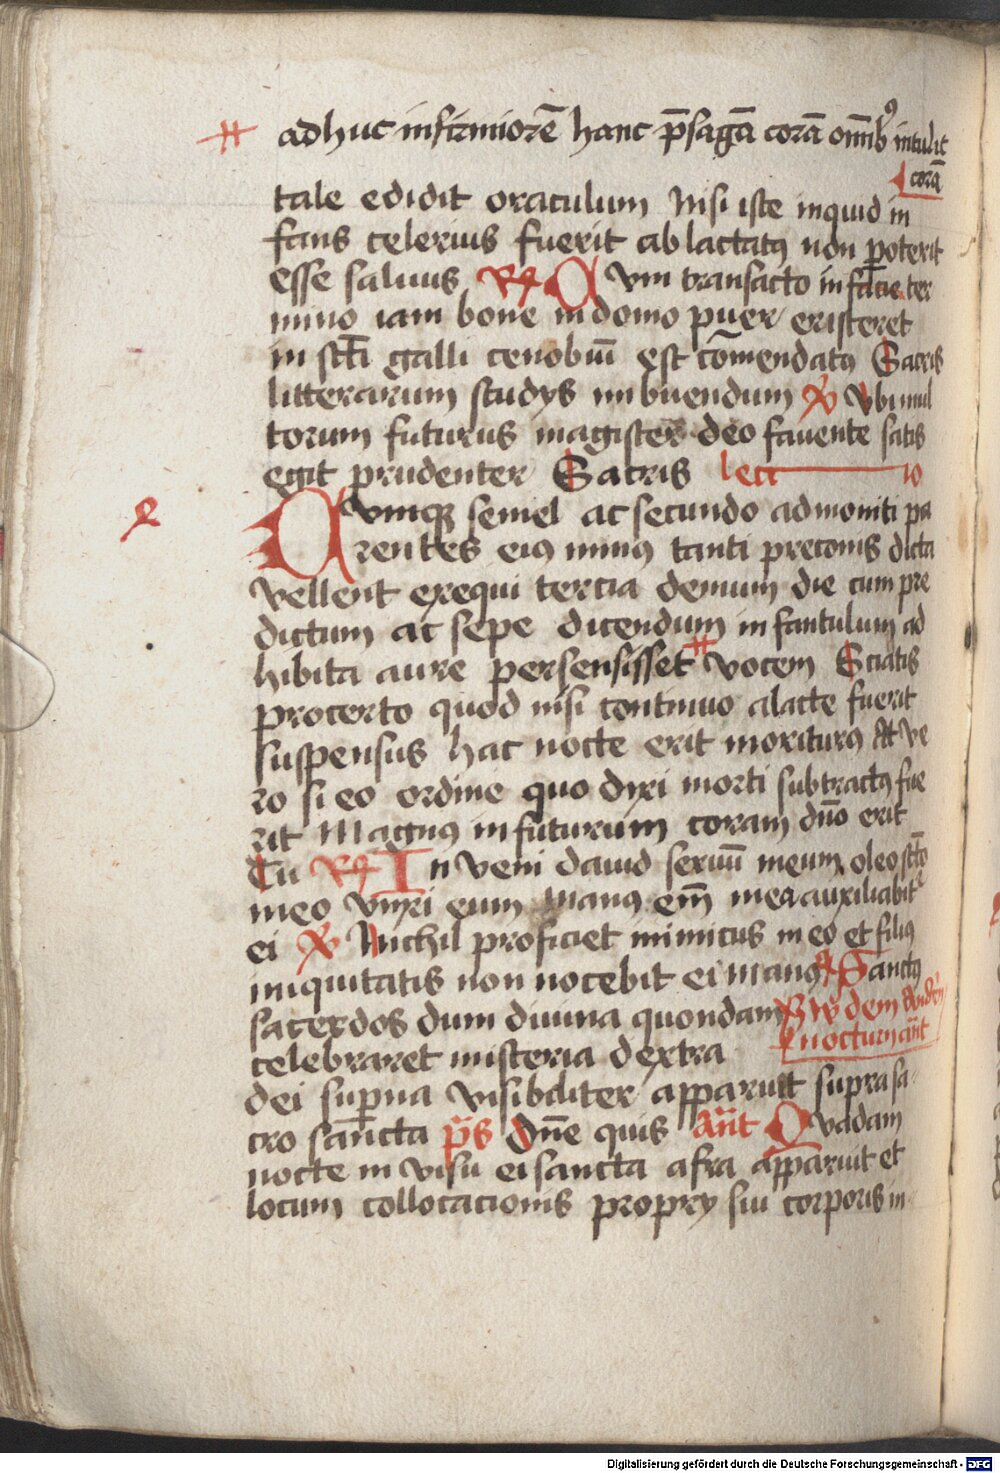 adhuc infirmiorē hanc p̄sagā corā om̄ib9 intulit
corā
tale edidit oraculum Nisi iste inquid in
fans celerius fuerit ablactatꝰ non poterit
esse saluus R̸ Cum transacto infācie ter
mino iam bone in domo puer existeret
in sc̄ti galli cenobiū est cōmendatꝰ Sacris
litterarum studys imbuendum V̸ Vbi mul
torum futurus magister deo fauente satis
egit prudenter Sacris lectio
Cumqꝫ semel ac secundo admoniti pa
rentes eiꝰ minꝰ tanti preconis dicta
vellent exequi tercia demum die cum pre
dictum ac sepe dicendum infantulum ad
hibita aure persensisset vocem Sciatis
procerto quod nisi continuo alacte fuerit
suspensus hac nocte erit moriturꝰ At ve
ro si eo ordine quo dixi morti subtractꝰ fue
rit Magnꝰ infuturum coram dn̄o erit
Tu R̸ Inveni dauid seruū meum oleo sc̄to
meo vnxi eum manꝰ em̄ mea auxiliabit᷑
ei V̸ Nichil proficiet inimicus in eo et filiꝰ
iniquitatis non nocebit ei manꝰ Sanctꝰ
sacerdos dum diuina quondam
nocturn an̄t
celebraret misteria dextra
dei sup̄na visibiliter apparuit supra sa
cro sancta p̄s Dn̄e quis An̄t Quadam
nocte in visu ei sancta afra apparuit et
locum collocacionis propry sui corporis in
Digitalisierung gefördert durch die Deutsche Forschungsgemeinschaft - DFG